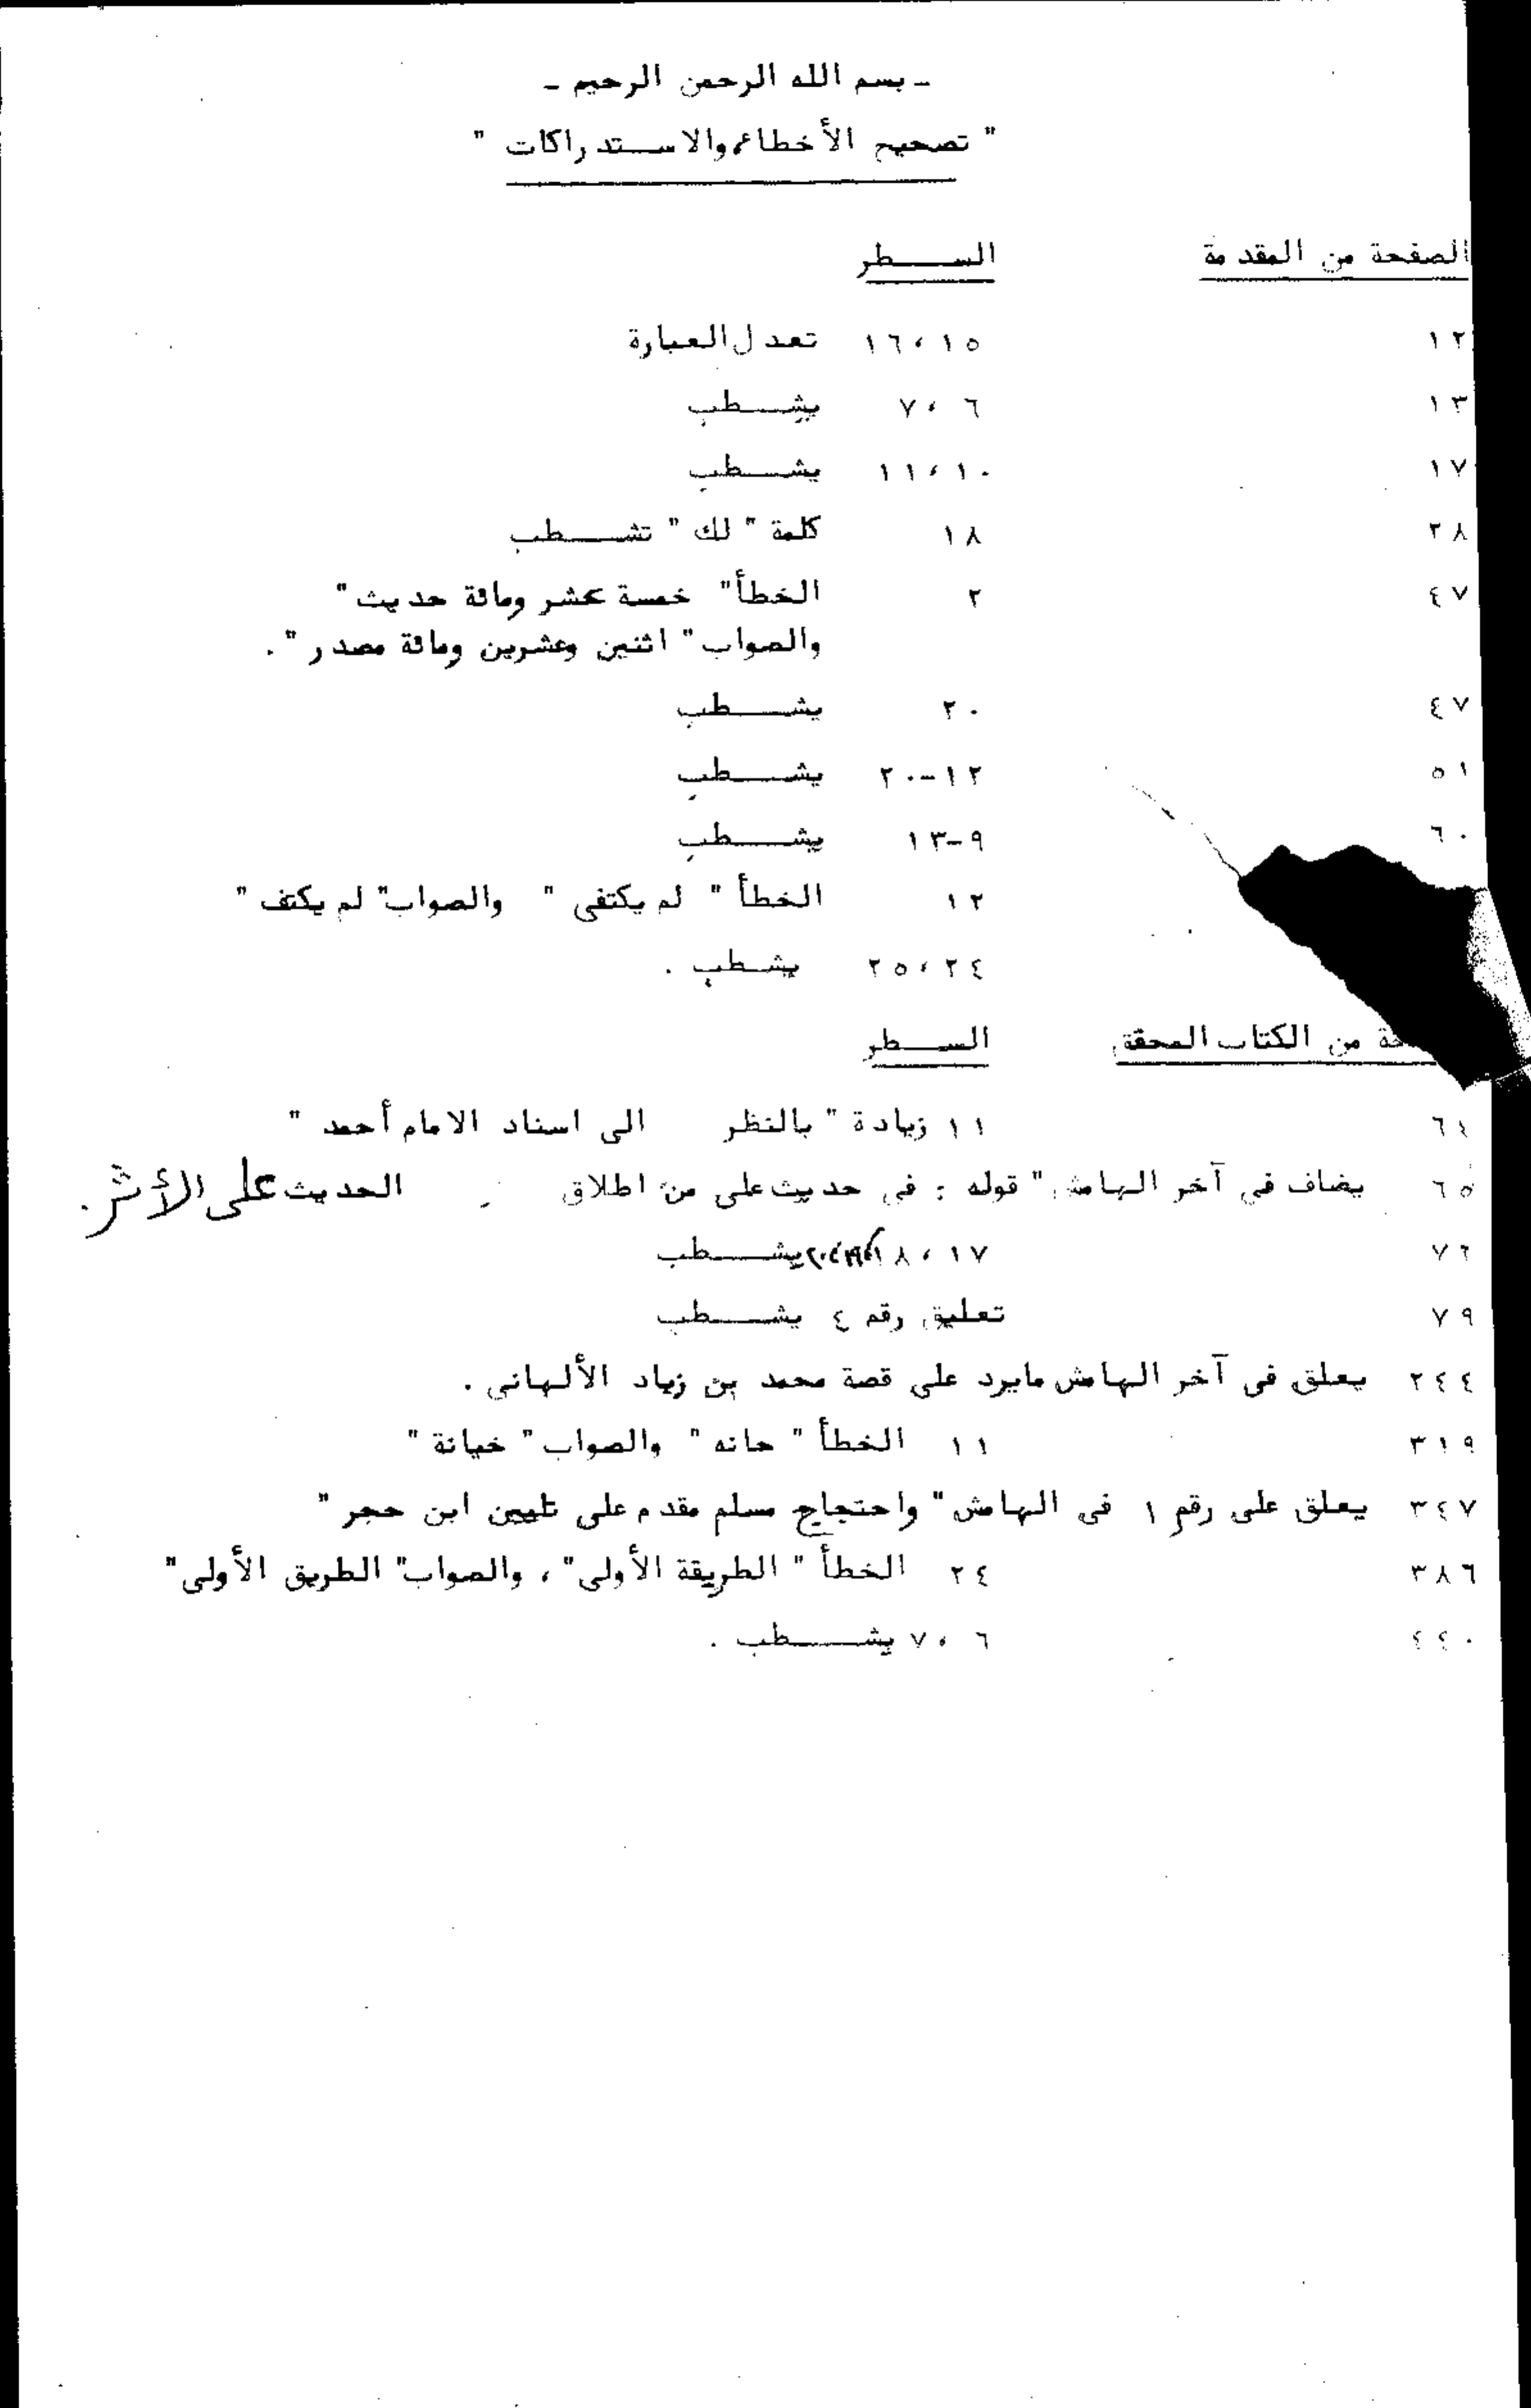 - بسم الله الرحمن الرحيم -
" تصحيح الأخطاء والاستدراكات "
الصفحة من المقدمة السطر
١٢ ١٥، ١٦ تعدل العبارة
١٣ ٦، ٧ يشطب
١٧ ١٠، ١١ يشطب
٢٨ ١٨ كلمة " لك " تشطب
٤٧ ٢ الخطأ " خمسة عشر ومائة حديث "
والصواب " اثنين وعشرين ومائة مصدر " .
٤٧ ٢٠ يشطب
٥١ ١٢-٢٠ يشطب
٦٠ ٩-١٣ يشطب
١٢ الخطأ " لم يكتفى " والصواب " لم يكتف "
٢٤، ٢٥ يشطب .
من الكتاب المحقق السطر
١١ زيادة " بالنظر الى اسناد الامام أحمد "
٦٥ يضاف في آخر الهامش " قوله : في حديث على من اطلاق الحديث على الأثر .
٧٦ ١٧، ١٨، ١٩، ٢٠ يشطب
٧٩ تعليق رقم ٤ يشطب
٢٤٤ يعلق في آخر الهامش مايرد على قصة محمد بن زياد الألهانى .
٣١٩ ١١ الخطأ " حانه " والصواب " خيانة "
٣٤٧ يعلق على رقم ١ فى الهامش " واحتجاج مسلم مقدم على تليين ابن حجر "
٣٨٦ ٢٤ الخطأ " الطريقة الأولى " ، والصواب " الطريق الأولى "
٤٤٠ ٦، ٧ يشطب .